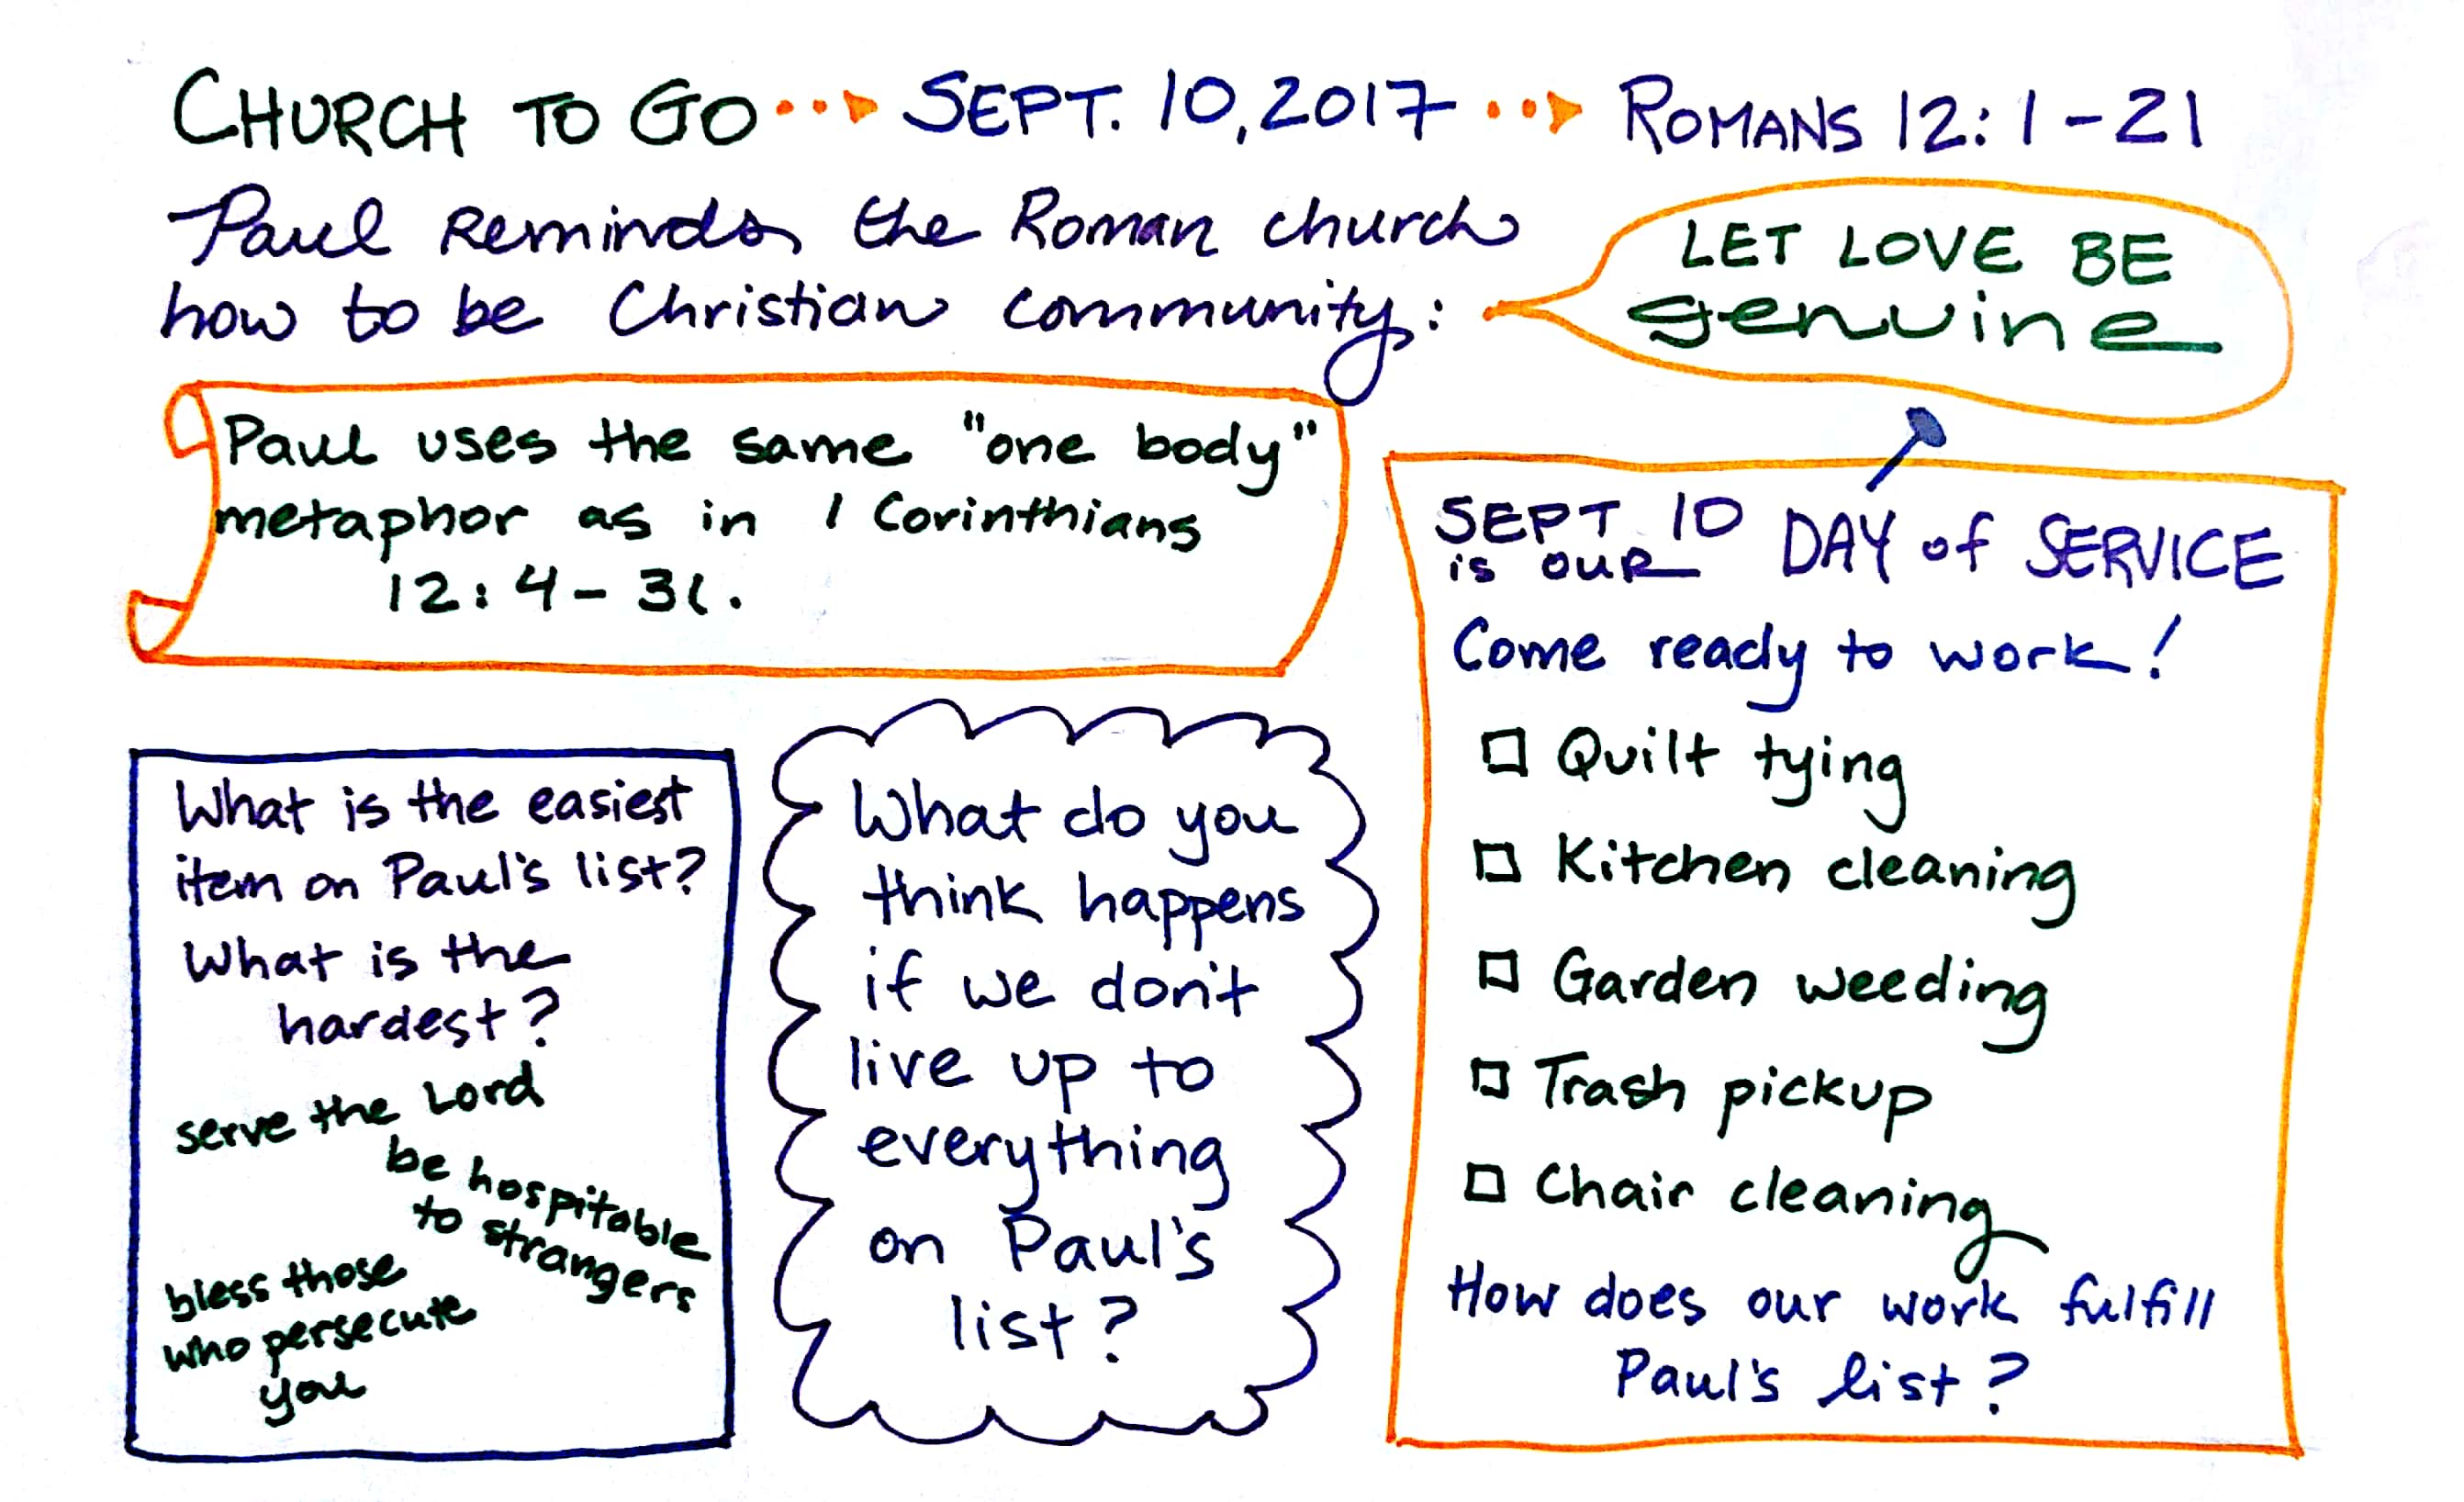 CHURCH TO GO SEPT. 10, 2017 ROMANS 12:1-21
Paul Reminds the Roman church
how to be Christian community:
LET LOVE BE
genuine
Paul uses the same "one body"
metaphor as in 1 Corinthians
12:4-31.
What is the easiest
item on Paul's list?
What is the
hardest?
serve the Lord
be hospitable
to strangers
bless those
who persecute
you
What do you
think happens
if we don't
live up to
everything
on Paul's
list?
SEPT 10
is OUR DAY of SERVICE
Come ready to work!
Quilt tying
Kitchen cleaning
Garden weeding
Trash pickup
Chair cleaning
How does our work fulfill
Paul's list?